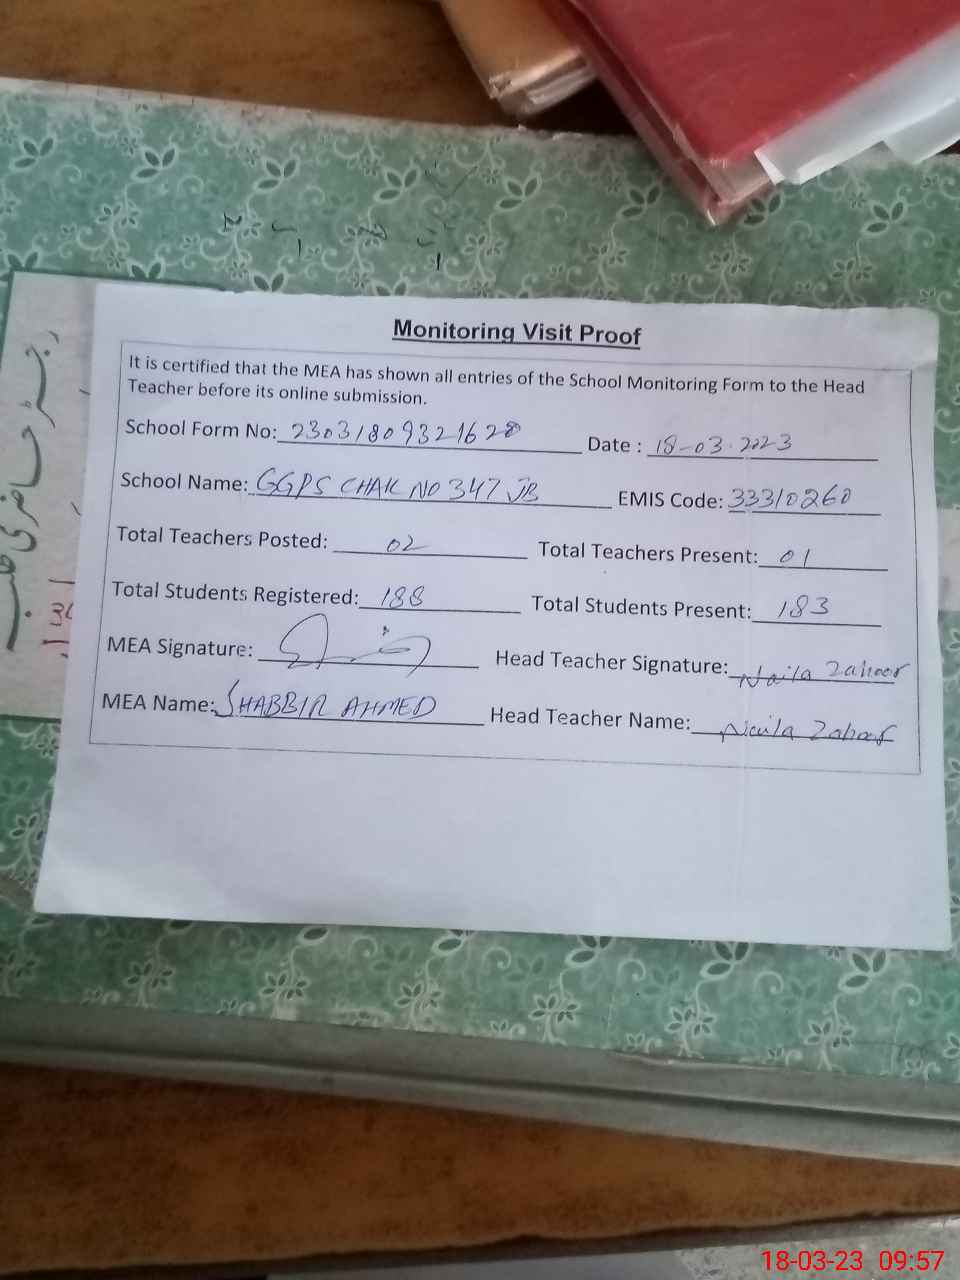 Monitoring Visit Proof
It is certified that the MEA has shown all entries of the School Monitoring Form to the Head
Teacher before its online submission.
School Form No: 23031809321628 Date : 18-03-2023
School Name: GGPS CHAK NO 347 JB EMIS Code: 33310260
Total Teachers Posted: 02 Total Teachers Present: 01
Total Students Registered: 188 Total Students Present: 183
MEA Signature: Head Teacher Signature: Naila Zahoor
MEA Name: SHABBIR AHMED Head Teacher Name: Naila Zahoor
رجسٹر حاضری طلبہ
18-03-23 09:57